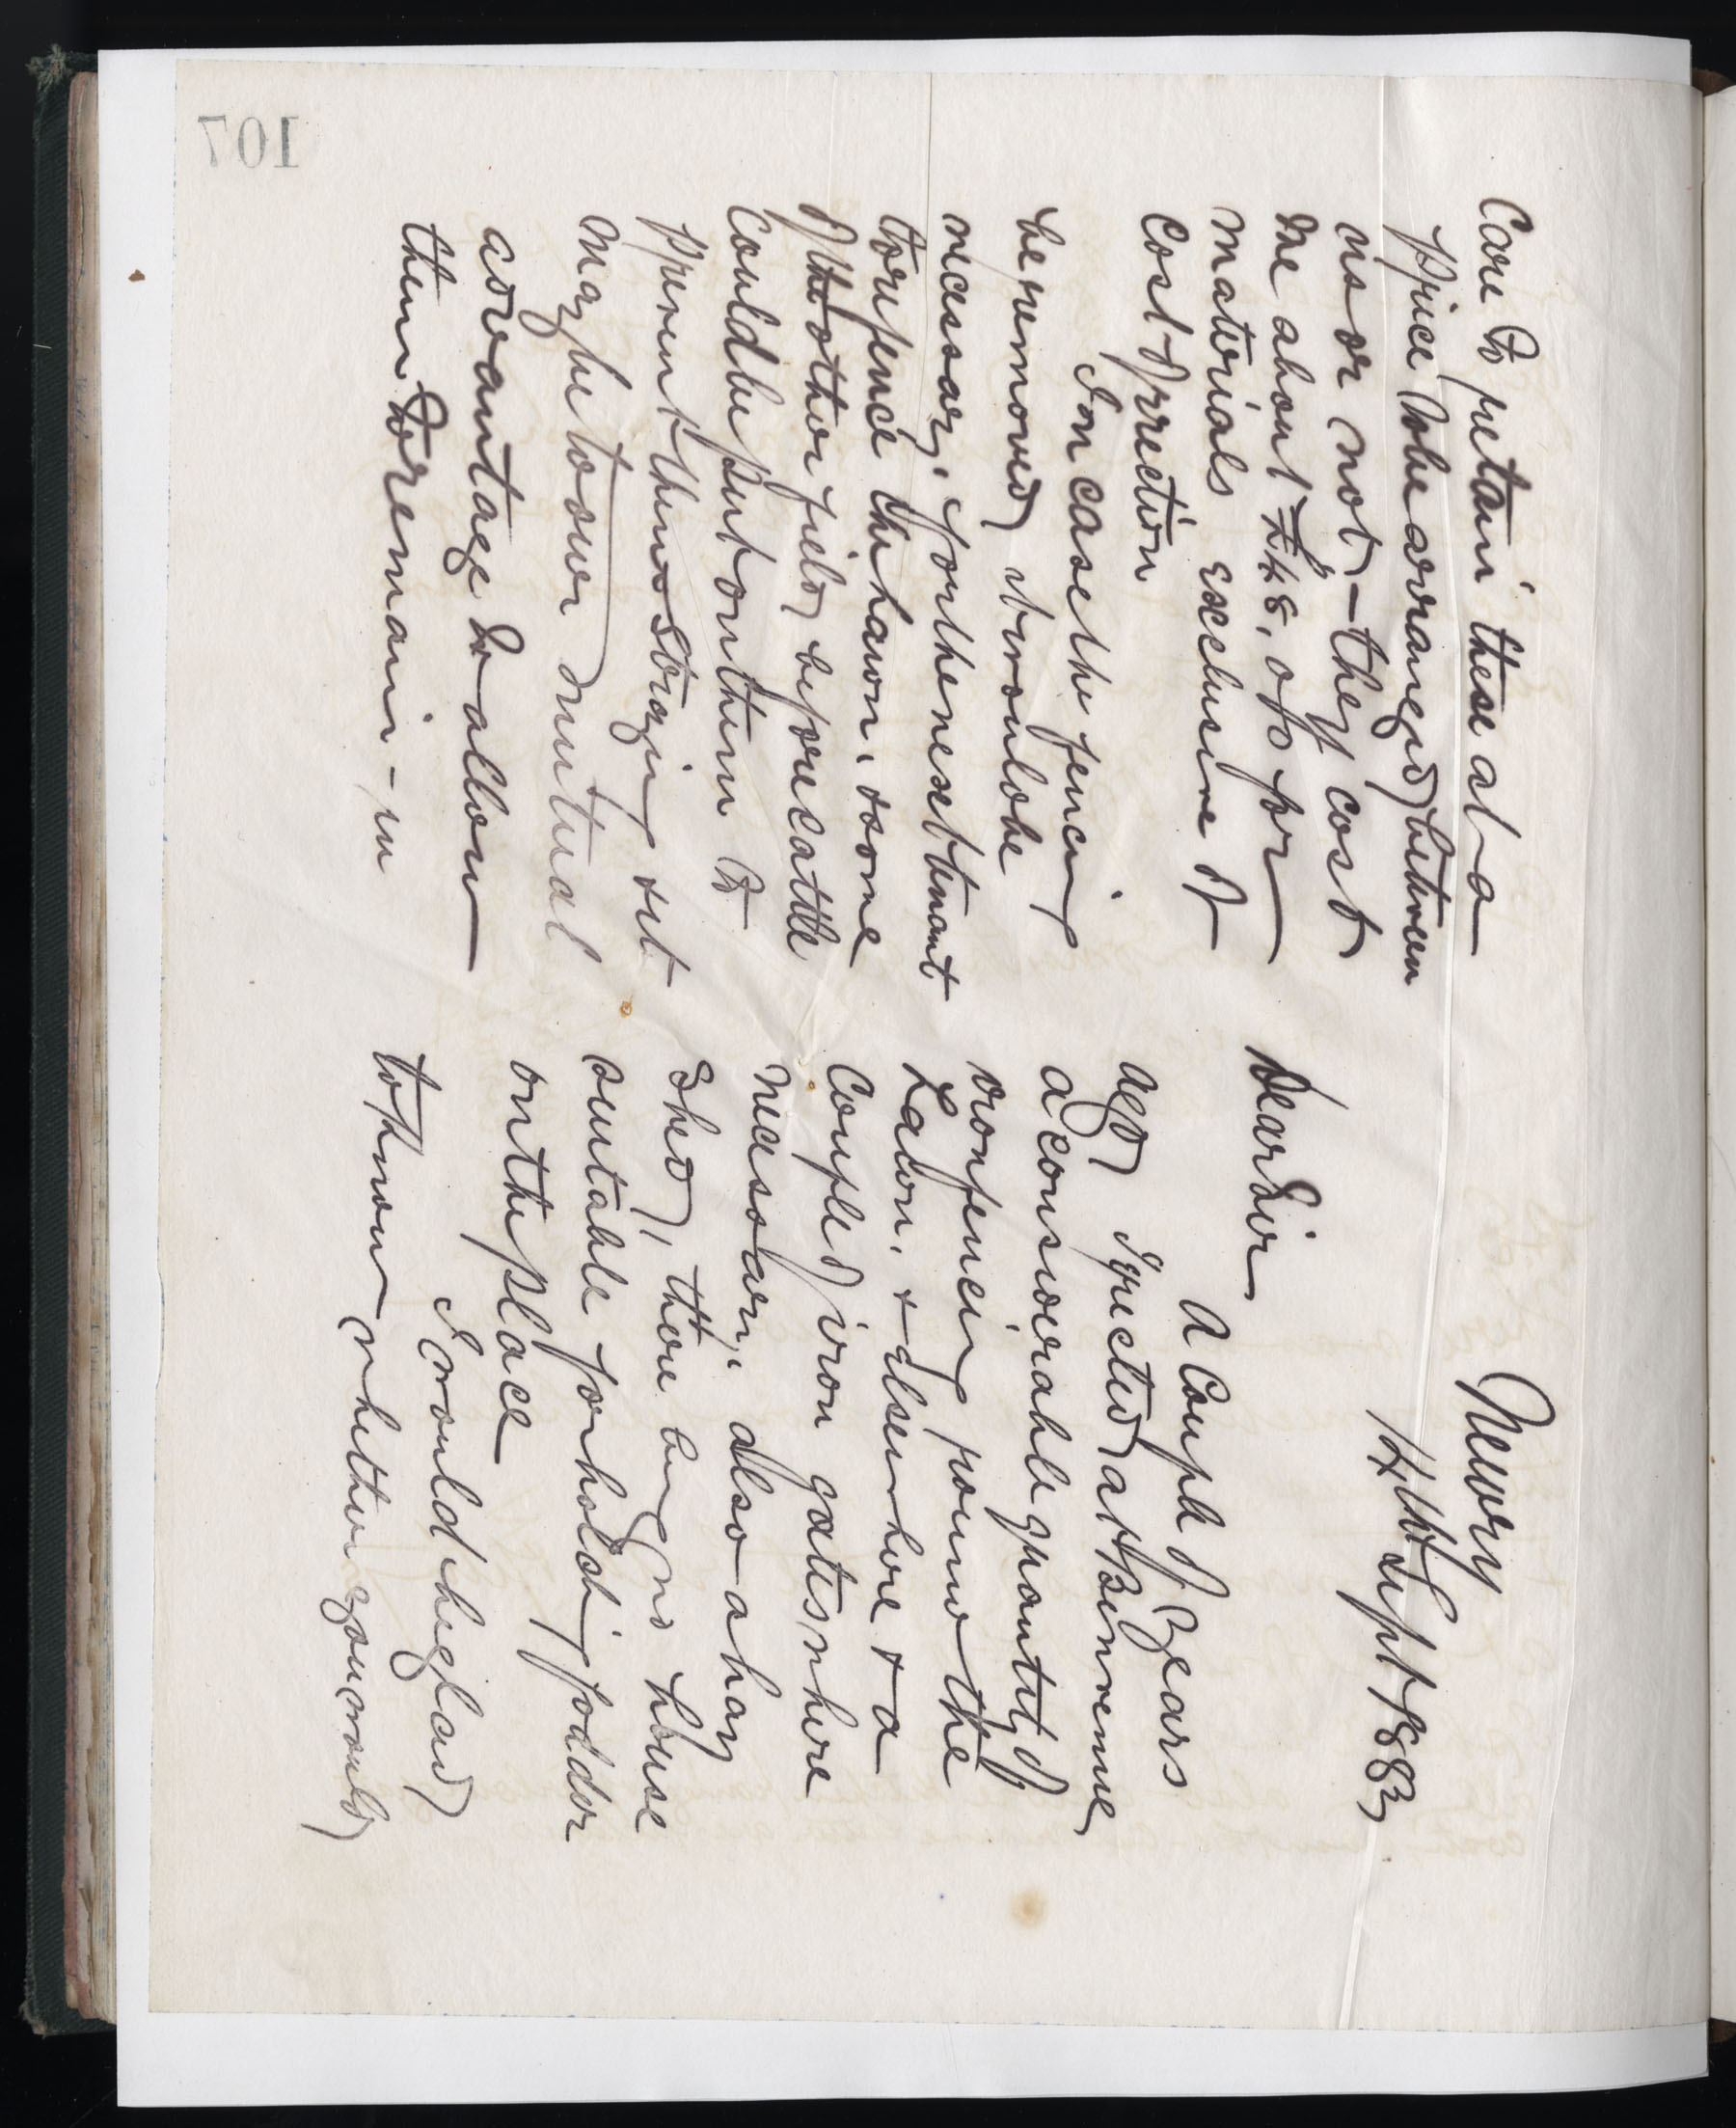 Newry
14th Sept 1883
Dear Sir
A Couple of Years
ago I erected at Benvenue
a considerable quantity of
iron fencing round the
Lawn, & elsewhere & a
Couple of iron gates where
necessary, also a hay
Shed, there being no house
suitable for holding fodder
on the place
I would be glad
to know whether you would
Care to retain these at a
price to be arranged between
us or not - they cost
me about £48. or so for
materials exclusive of
cost of erection
In case the fencing
be removed it would be
necessary, for the next tenant
to refence the lawn, & some
of the other fields before cattle
could be put on them to
prevent them straying & it
may be to our mutual
advantage to allow
them to remain - in
107